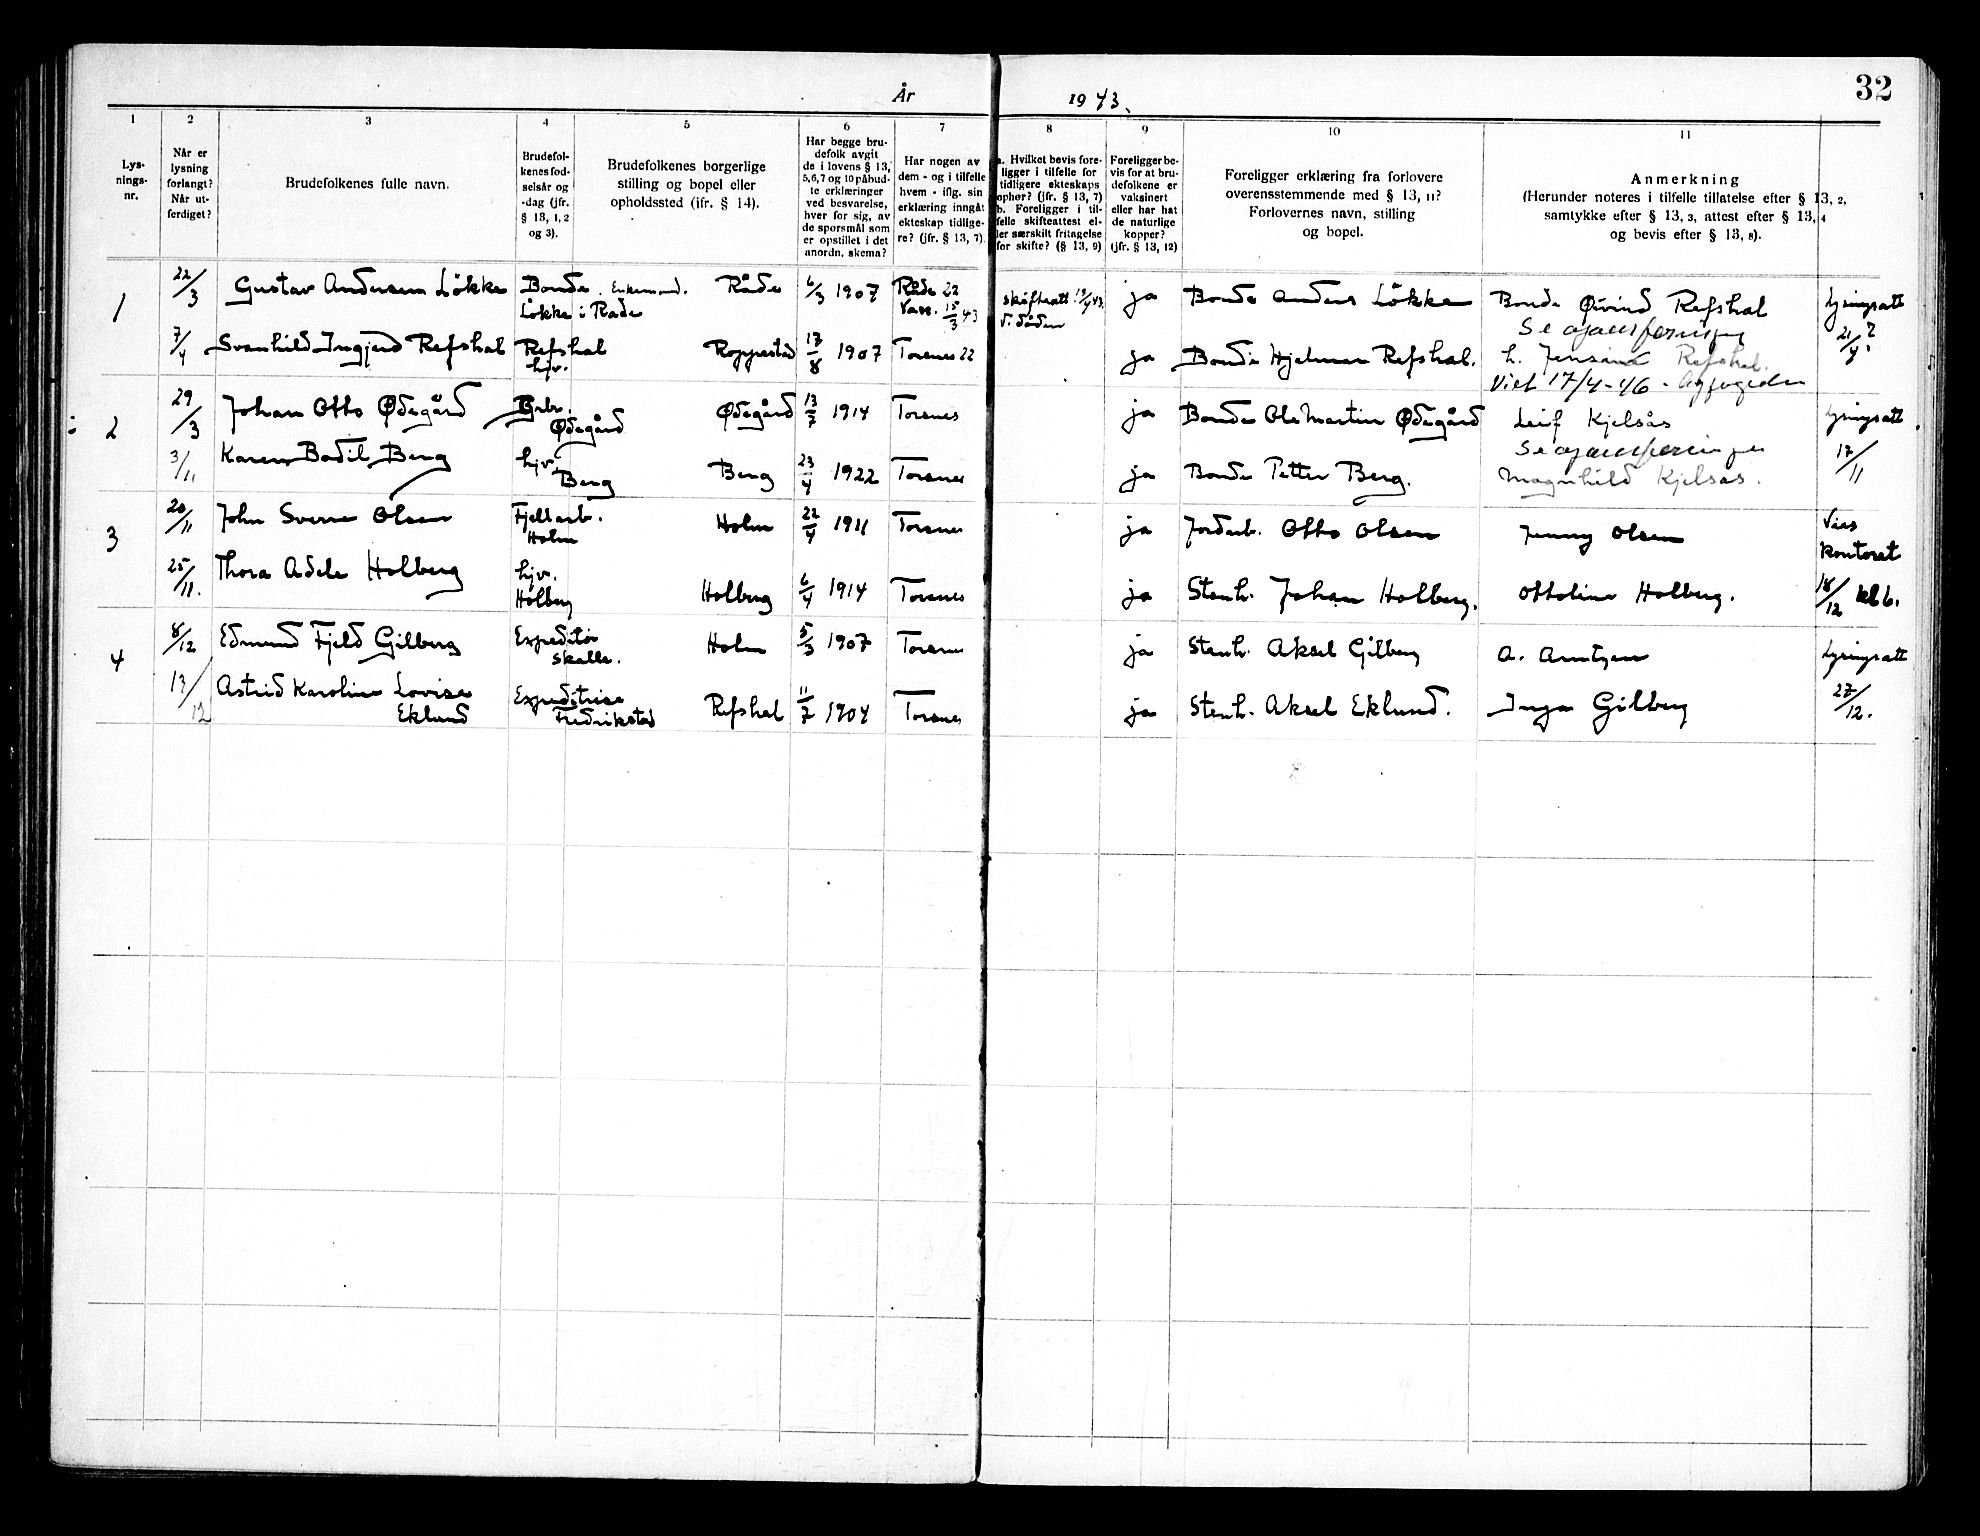 32
År 1943.
1
2
3
4
5
6
7
8
9
10
11
Lys-
nings-
nr.
Når er
lysning
forlangt?
Når ut-
ferdiget?
Brudefolkenes fulle navn.
Brudefol-
kenes fød-
selsår og
-dag (jfr.
§ 13, 1, 2
og 3).
Brudefolkenes borgerlige
stilling og bopel eller
opholdssted (jfr. § 14).
Har begge bru-
defolk avgit
de i lovens § 13,
5, 6, 7 og 10 påbud-
te erklæringer
ved besvarelse,
hver for sig, av
de spørsmål som
er opstillet i det
anordn. skema?
Har nogen av
dem - og i tilfelle
hvem - iflg. sin
erklæring inngåt
ekteskap tidlige-
re? (jfr. § 13, 7).
a. Hvilket bevis fore-
ligger i tilfelle for
tidligere ekteskaps
ophør? (jfr. § 13, 7)
b. Foreligger i til-
felle skifteattest el-
ler særskilt fritagelse
for skifte? (§ 13, 9)
Foreligger be-
vis for at bru-
defolkene er
vaksinert
eller har hat
de naturlige
kopper?
(jfr. § 13, 12)
Foreligger erklæring fra forlovere
overensstemmende med § 13, 11?
Forlovernes navn, stilling
og bopel.
Anmerkning
(Herunder noteres i tilfelle tillatelse efter § 13, 2,
samtykke efter § 13, 3, attest efter § 13, 4
og bevis efter § 13, 8).
1 22/3 Gustav Andersen Løkke Bonde. Enkemand. Råde 6/3 1907 Råde 22 skifteatt 19/4 43 ja Bonde Anders Løkke Bonde Øivind Refshal Lysingsatt
Løkke i Råde Vass. 15/3 43 v. døden 21/4 ?
7/4 Svanhild Ingjerd Refshal Refshal Roppestad 13/8 1907 Torsnes 22 ja Bonde Hjelmar Refshal. h. Jensine Refshal.
hjv. Viet 17/4-46
2 29/3 Johan Otto Ødegård Grbr. Ødegård 13/7 1914 Torsnes ja Bonde Ole Martin Ødegård Leif Kjelsås Lysingsatt
Ødegård
3/11 Karen Bodil Berg hjv. Berg 23/4 1922 Torsnes ja Bonde Petter Berg. Magnhild Kjelsås. 17/11
Berg
3 20/11 John Sverre Olsen Fjellarb. Holm 22/4 1911 Torsnes ja Jordarb. Otto Olsen Jenny Olsen Vies
Holm kontoret
25/11. Thora Adele Holberg hjv. Holberg 6/4 1914 Torsnes ja Stenh. Johan Holberg. Ottoline Holberg. 18/12 kl 6.
Holberg
4 8/12 Edmund Fjeld Gilberg Expeditør Holm 5/3 1907 Torsnes ja Stenh. Aksel Gilberg A. Arntzen Lysingsatt
Skalle.
13/12 Astrid Karoline Lovise Expeditrise Refshal 11/7 1904 Torsnes ja Stenh. Aksel Eklund. Inga Gilberg 27/12.
Eklund Fredrikstad